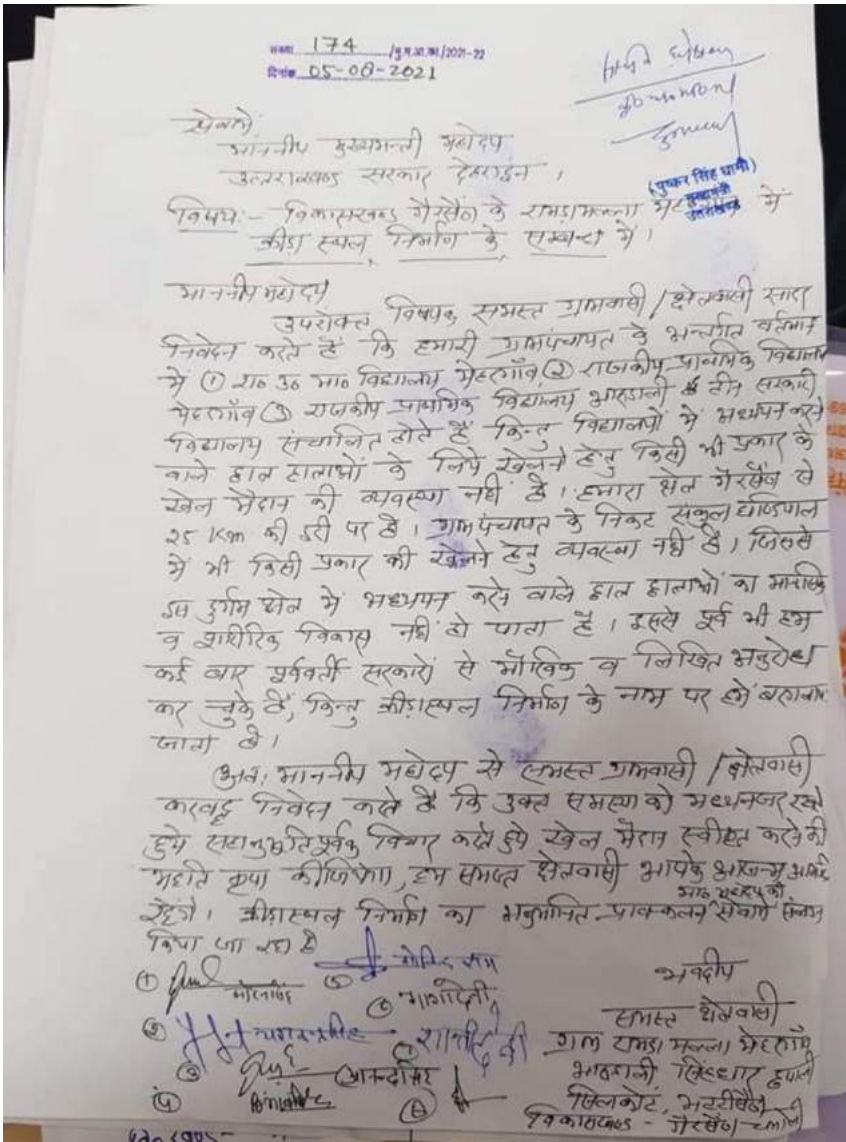 संख्या 174 /मु.म.आ.का/2021-22
दिनांक 05-08-2021
(पुष्कर सिंह धामी)
मुख्यमंत्री
उत्तराखण्ड
सेवामें
माननीय मुख्यमन्त्री महोदय
उत्तराखण्ड सरकार देहरादून ।
विषय:- विकासखण्ड गैरसैंण के रामड़ामल्ला में
क्रीड़ा स्थल निर्माण के सम्बन्ध में ।
माननीय महोदय
उपरोक्त विषयक समस्त ग्रामवासी / क्षेत्रवासी सादर
निवेदन करते हैं कि हमारी ग्रामपंचायत के अन्तर्गत वर्तमान
में ① रा० उ० मा० विद्यालय मेहरगाँव ② राजकीय प्राथमिक विद्यालय
मेहरगाँव ③ राजकीय प्राथमिक विद्यालय तीन सरकारी
विद्यालय संचालित होते हैं किन्तु विद्यालयों में अध्ययन करने
वाले छात्र छात्राओं के लिये खेलने हेतु किसी भी प्रकार के
खेल मैदान की व्यवस्था नहीं है । हमारा क्षेत्र गैरसैंण से
25 Km की दूरी पर है । ग्रामपंचायत के निकट संकुल
में भी किसी प्रकार की खेलने हेतु व्यवस्था नहीं है । जिससे
इस दुर्गम क्षेत्र में अध्ययन करने वाले छात्र छात्राओं का मानसिक
व शारीरिक विकास नहीं हो पाता है । इससे पूर्व भी हम
कई बार पूर्ववर्ती सरकारों से मौखिक व लिखित अनुरोध
कर चुके हैं, किन्तु क्रीड़ास्थल निर्माण के नाम पर हमें
जाता है ।
अतः माननीय महोदय से समस्त ग्रामवासी / क्षेत्रवासी
करबद्ध निवेदन करते हैं कि उक्त समस्या को मध्यनजर रखते
हुये सहानुभूतिपूर्वक विचार करते हुये खेल मैदान स्वीकृत करने की
महति कृपा कीजियेगा, हम समस्त क्षेत्रवासी आपके आजन्म आभारी
रहेंगे । क्रीड़ास्थल निर्माण का अनुमानित प्राक्कलन मा० महोदय की सेवामें संलग्न
किया जा रहा है
① ⑤ गोविन्द राम
② ⑥ भागादेवी
③ ⑦ शान्ति देवी
आनन्द सिंह
④ ⑧
भवदीय
समस्त क्षेत्रवासी
ग्राम रामड़ा मल्ला मेहरगाँव
सिलकोट,
विकासखण्ड - गैरसैंण चमोली